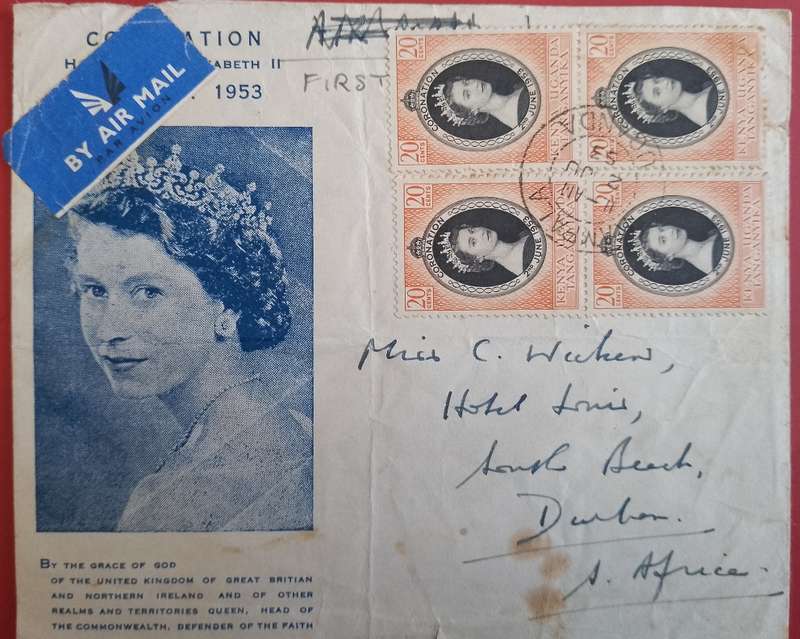 CO ATION
H ZABETH II
1953
BY AIR MAIL
PAR AVION
FIRST
20 CENTS
CORONATION 2ND JUNE 1953
KENYA UGANDA
TANGANYIKA
20
CORONATION 2ND JUNE 1953
KENYA UGANDA
TANGANYIKA
20 CENTS
CORONATION 2ND JUNE 1953
KENYA UGANDA
TANGANYIKA
20 CENTS
CORONATION 2ND JUNE 1953
KENYA UGANDA
TANGANYIKA
Miss C.
Hotel
South Beach,
Durban.
S. Africa.
BY THE GRACE OF GOD
OF THE UNITED KINGDOM OF GREAT BRITIAN
AND NORTHERN IRELAND AND OF OTHER
REALMS AND TERRITORIES QUEEN, HEAD OF
THE COMMONWEALTH, DEFENDER OF THE FAITH